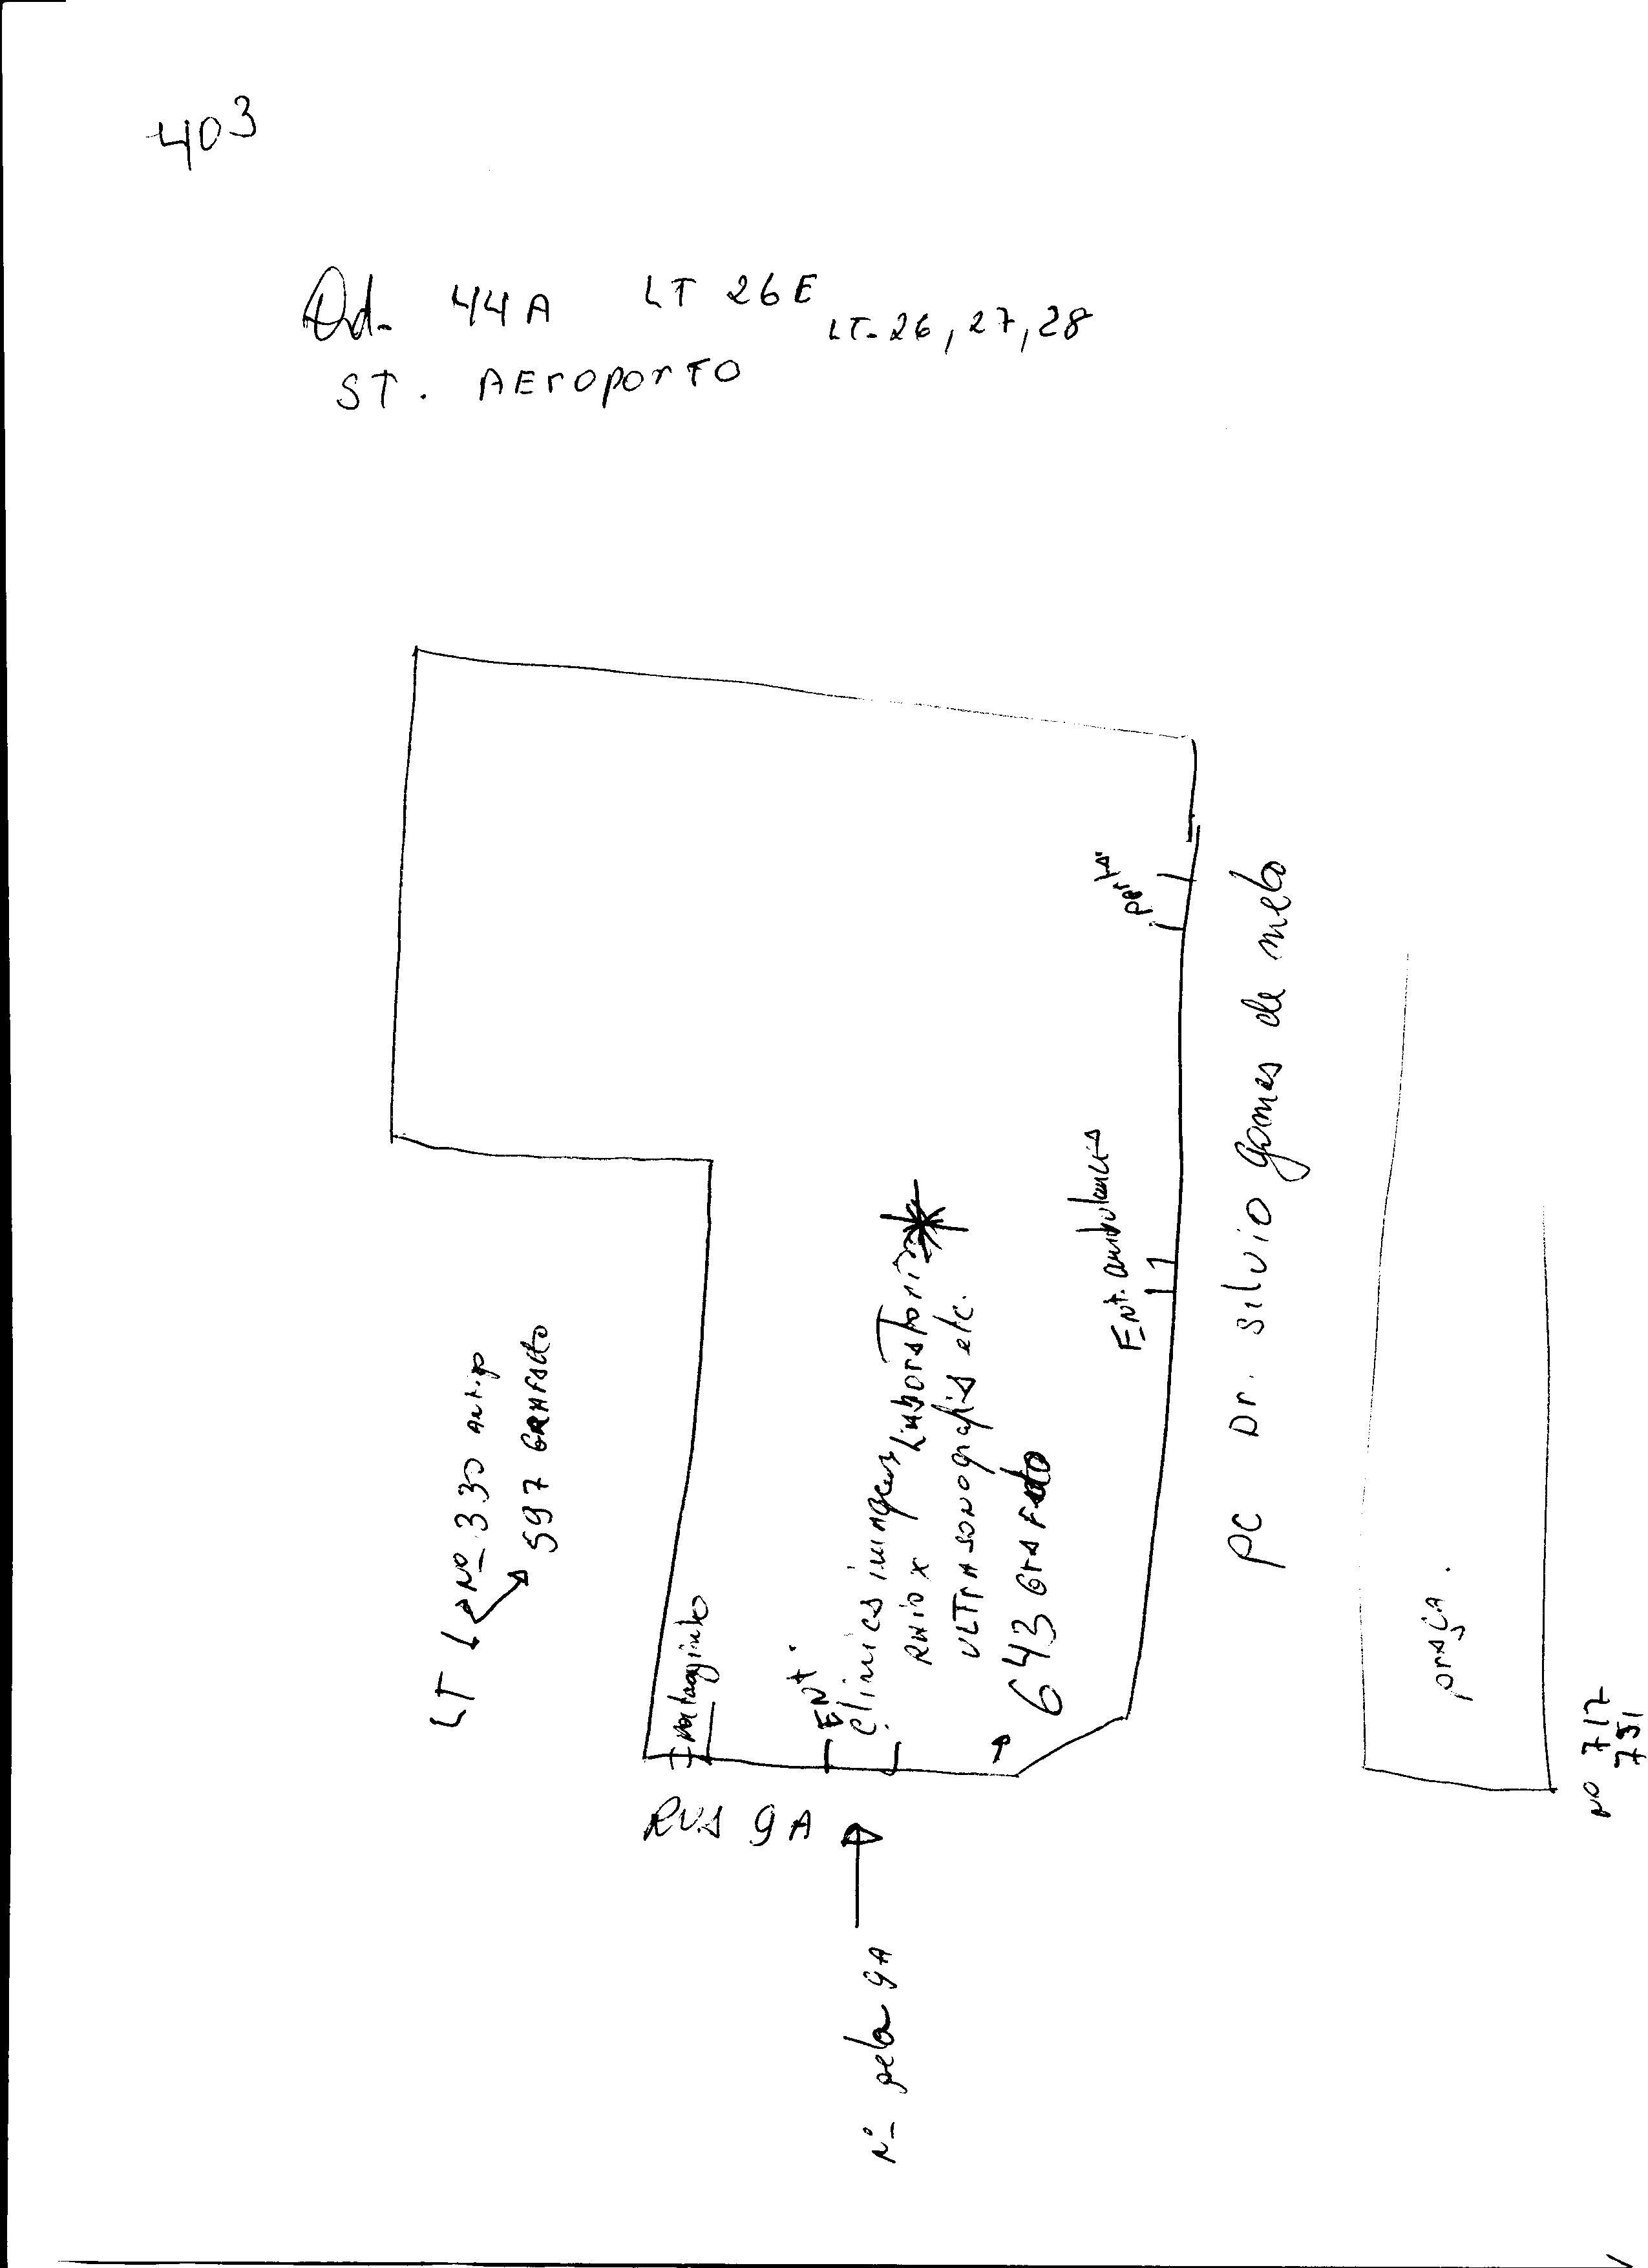 403
Qd. 44A LT 26E LT. 26, 27, 28
ST. AEroporTO
LT 6 Nº 330 ANTigo
597 GRAFADO
portaozinho
ENT.
Clinicas imagens Laboratorio
RAio X
ULTrASONOgrafia etc.
643 GrAFAdo
Ent. ambulancia
porta
RUA 9A
Nº pela 9A
PC Dr. Silvio Gomes de melo
prAÇA.
Nº 717
751